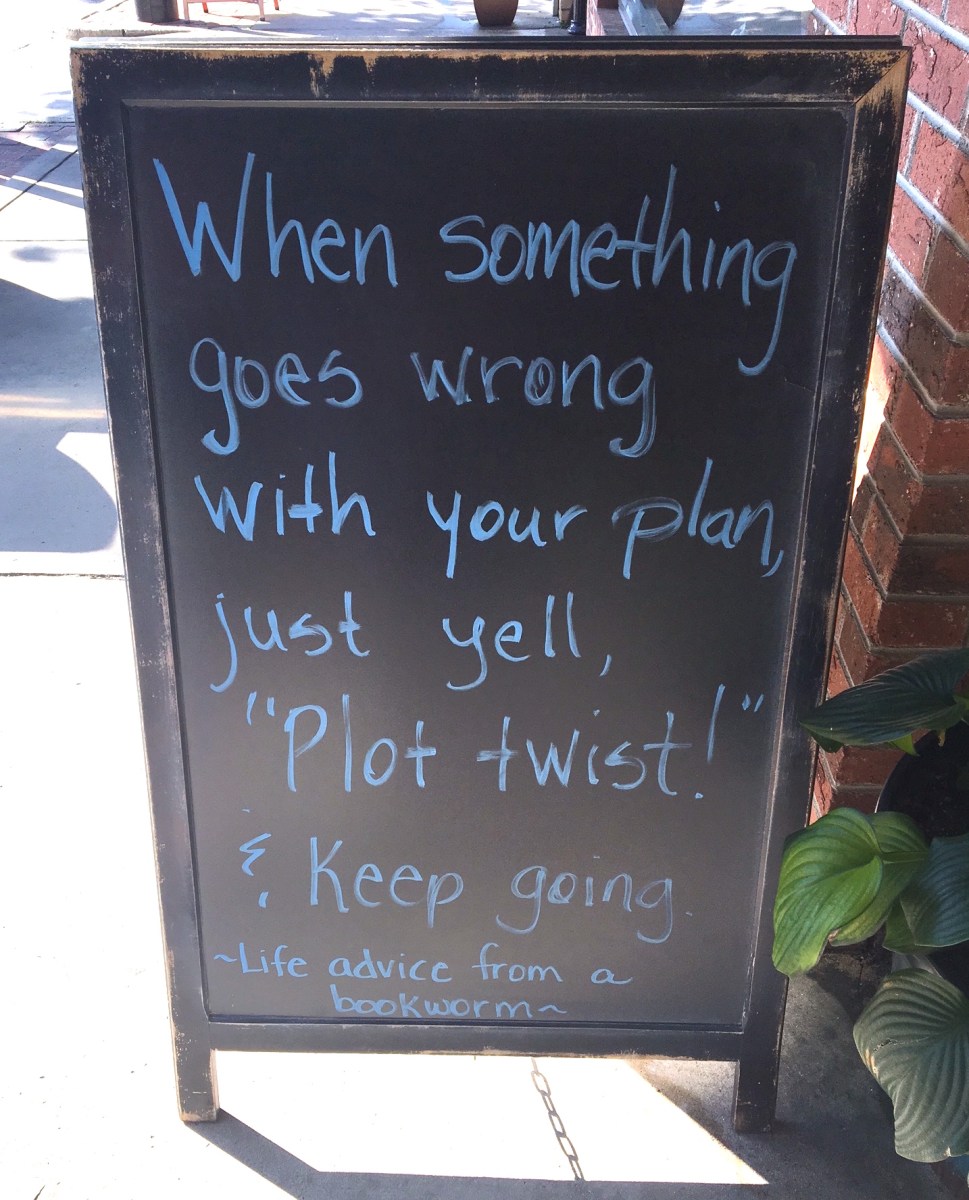 When something
goes wrong
with your plan,
just yell,
"Plot twist!"
& Keep going.
~Life advice from a
bookworm~